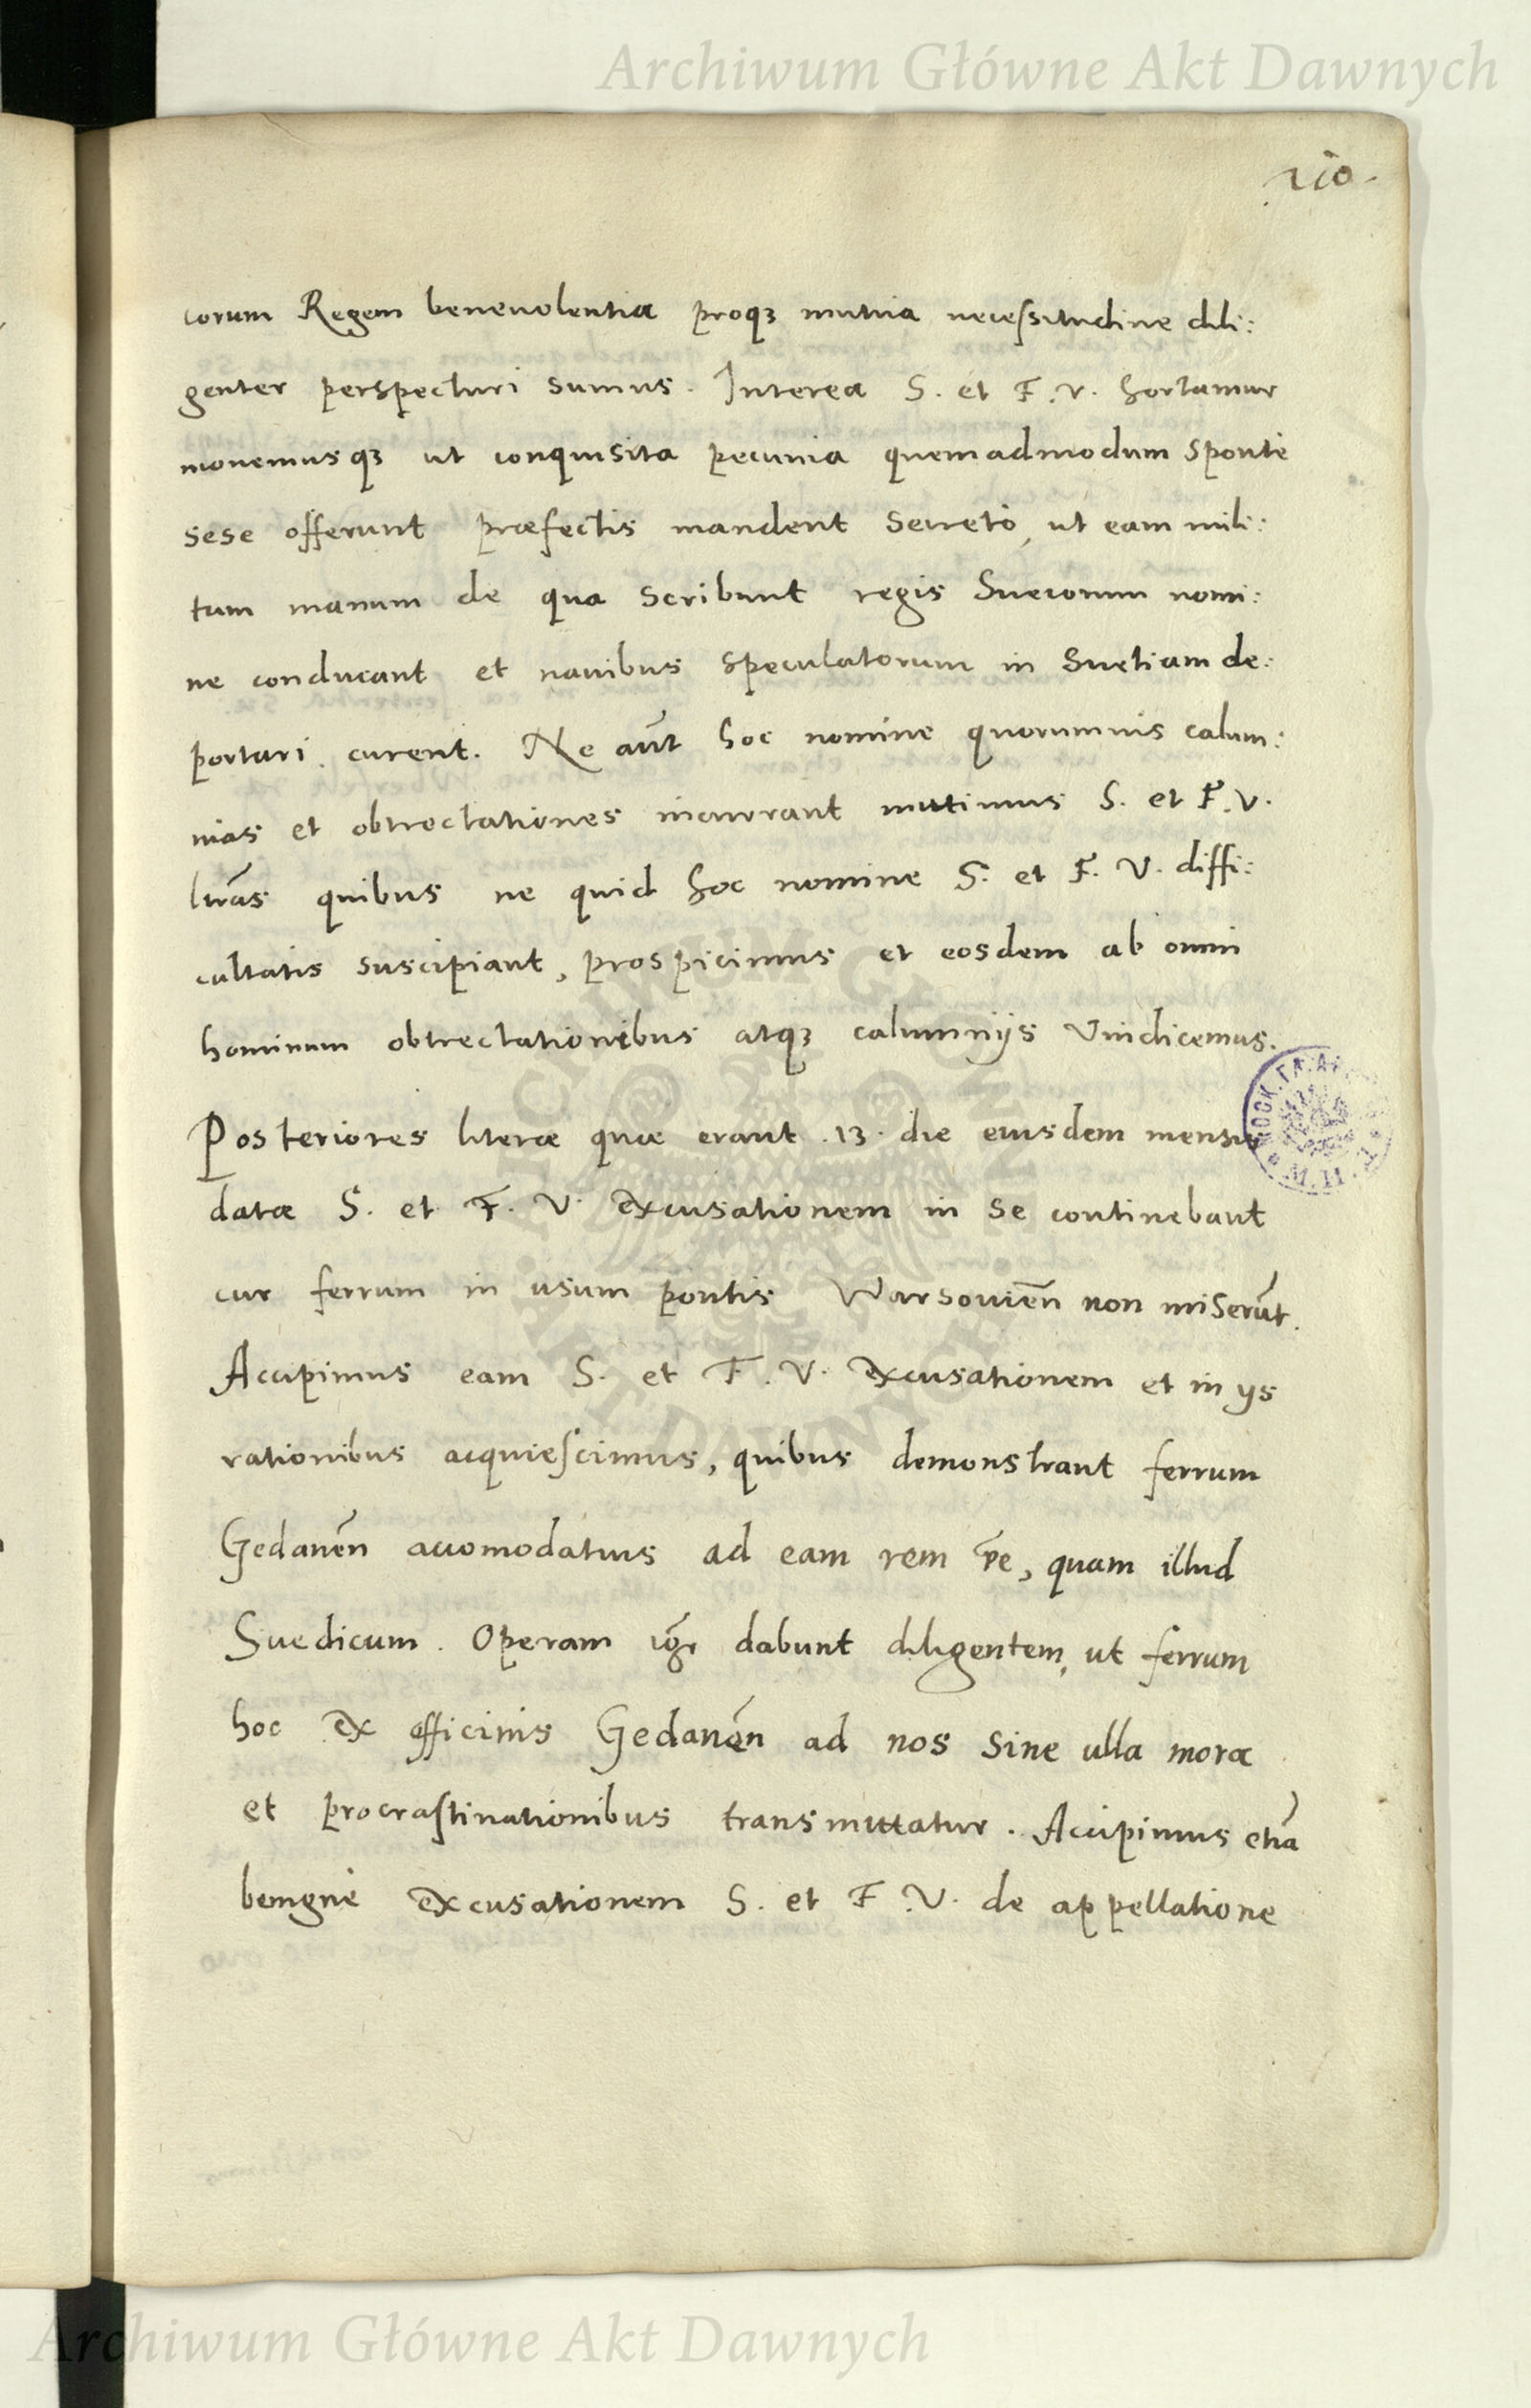 Archiwum Główne Akt Dawnych
210.
corum Regem beneuolentia proqꝫ mutua neceſsitudine dili:
genter perspecturi sumus. Interea S. et F. V. hortamur
monemusqꝫ ut conquisita pecunia quemadmodum sponte
sese offerunt præfectis mandent secretò, ut eam mili:
tum manum de qua scribunt regis Suecorum nomi:
ne conducant et nauibus speculatorum in Suetiam de:
portari curent. Ne aūt hoc nomine quorumuis calum:
nias et obtrectationes incurrant mittimus S. et F. V.
lrās quibus ne quid hoc nomine S. et F. V. diffi:
cultatis suscipiant, prospicimus et eosdem ab omni
hominum obtrectationibus atqꝫ calumnijs Vindicemus.
Posteriores literæ quæ erant .13. die eiusdem mensis
datæ S. et F. V. excusationem in se continebant
cur ferrum in usum pontis Warsouień non miserūt.
Accipimus eam S. et F. V. excusationem et in ijs
rationibus acquieſcimus, quibus demonstrant ferrum
Gedaneń accomodatius ad eam rem e͞e, quam illud
Suedicum. Operam igr̄ dabunt diligentem, ut ferrum
hoc ex officinis Gedaneń ad nos sine ulla mora
et procraſtinationibus transmittatur. Accipimus etiā
benignè excusationem S. et F. V. de appellatione
Archiwum Główne Akt Dawnych